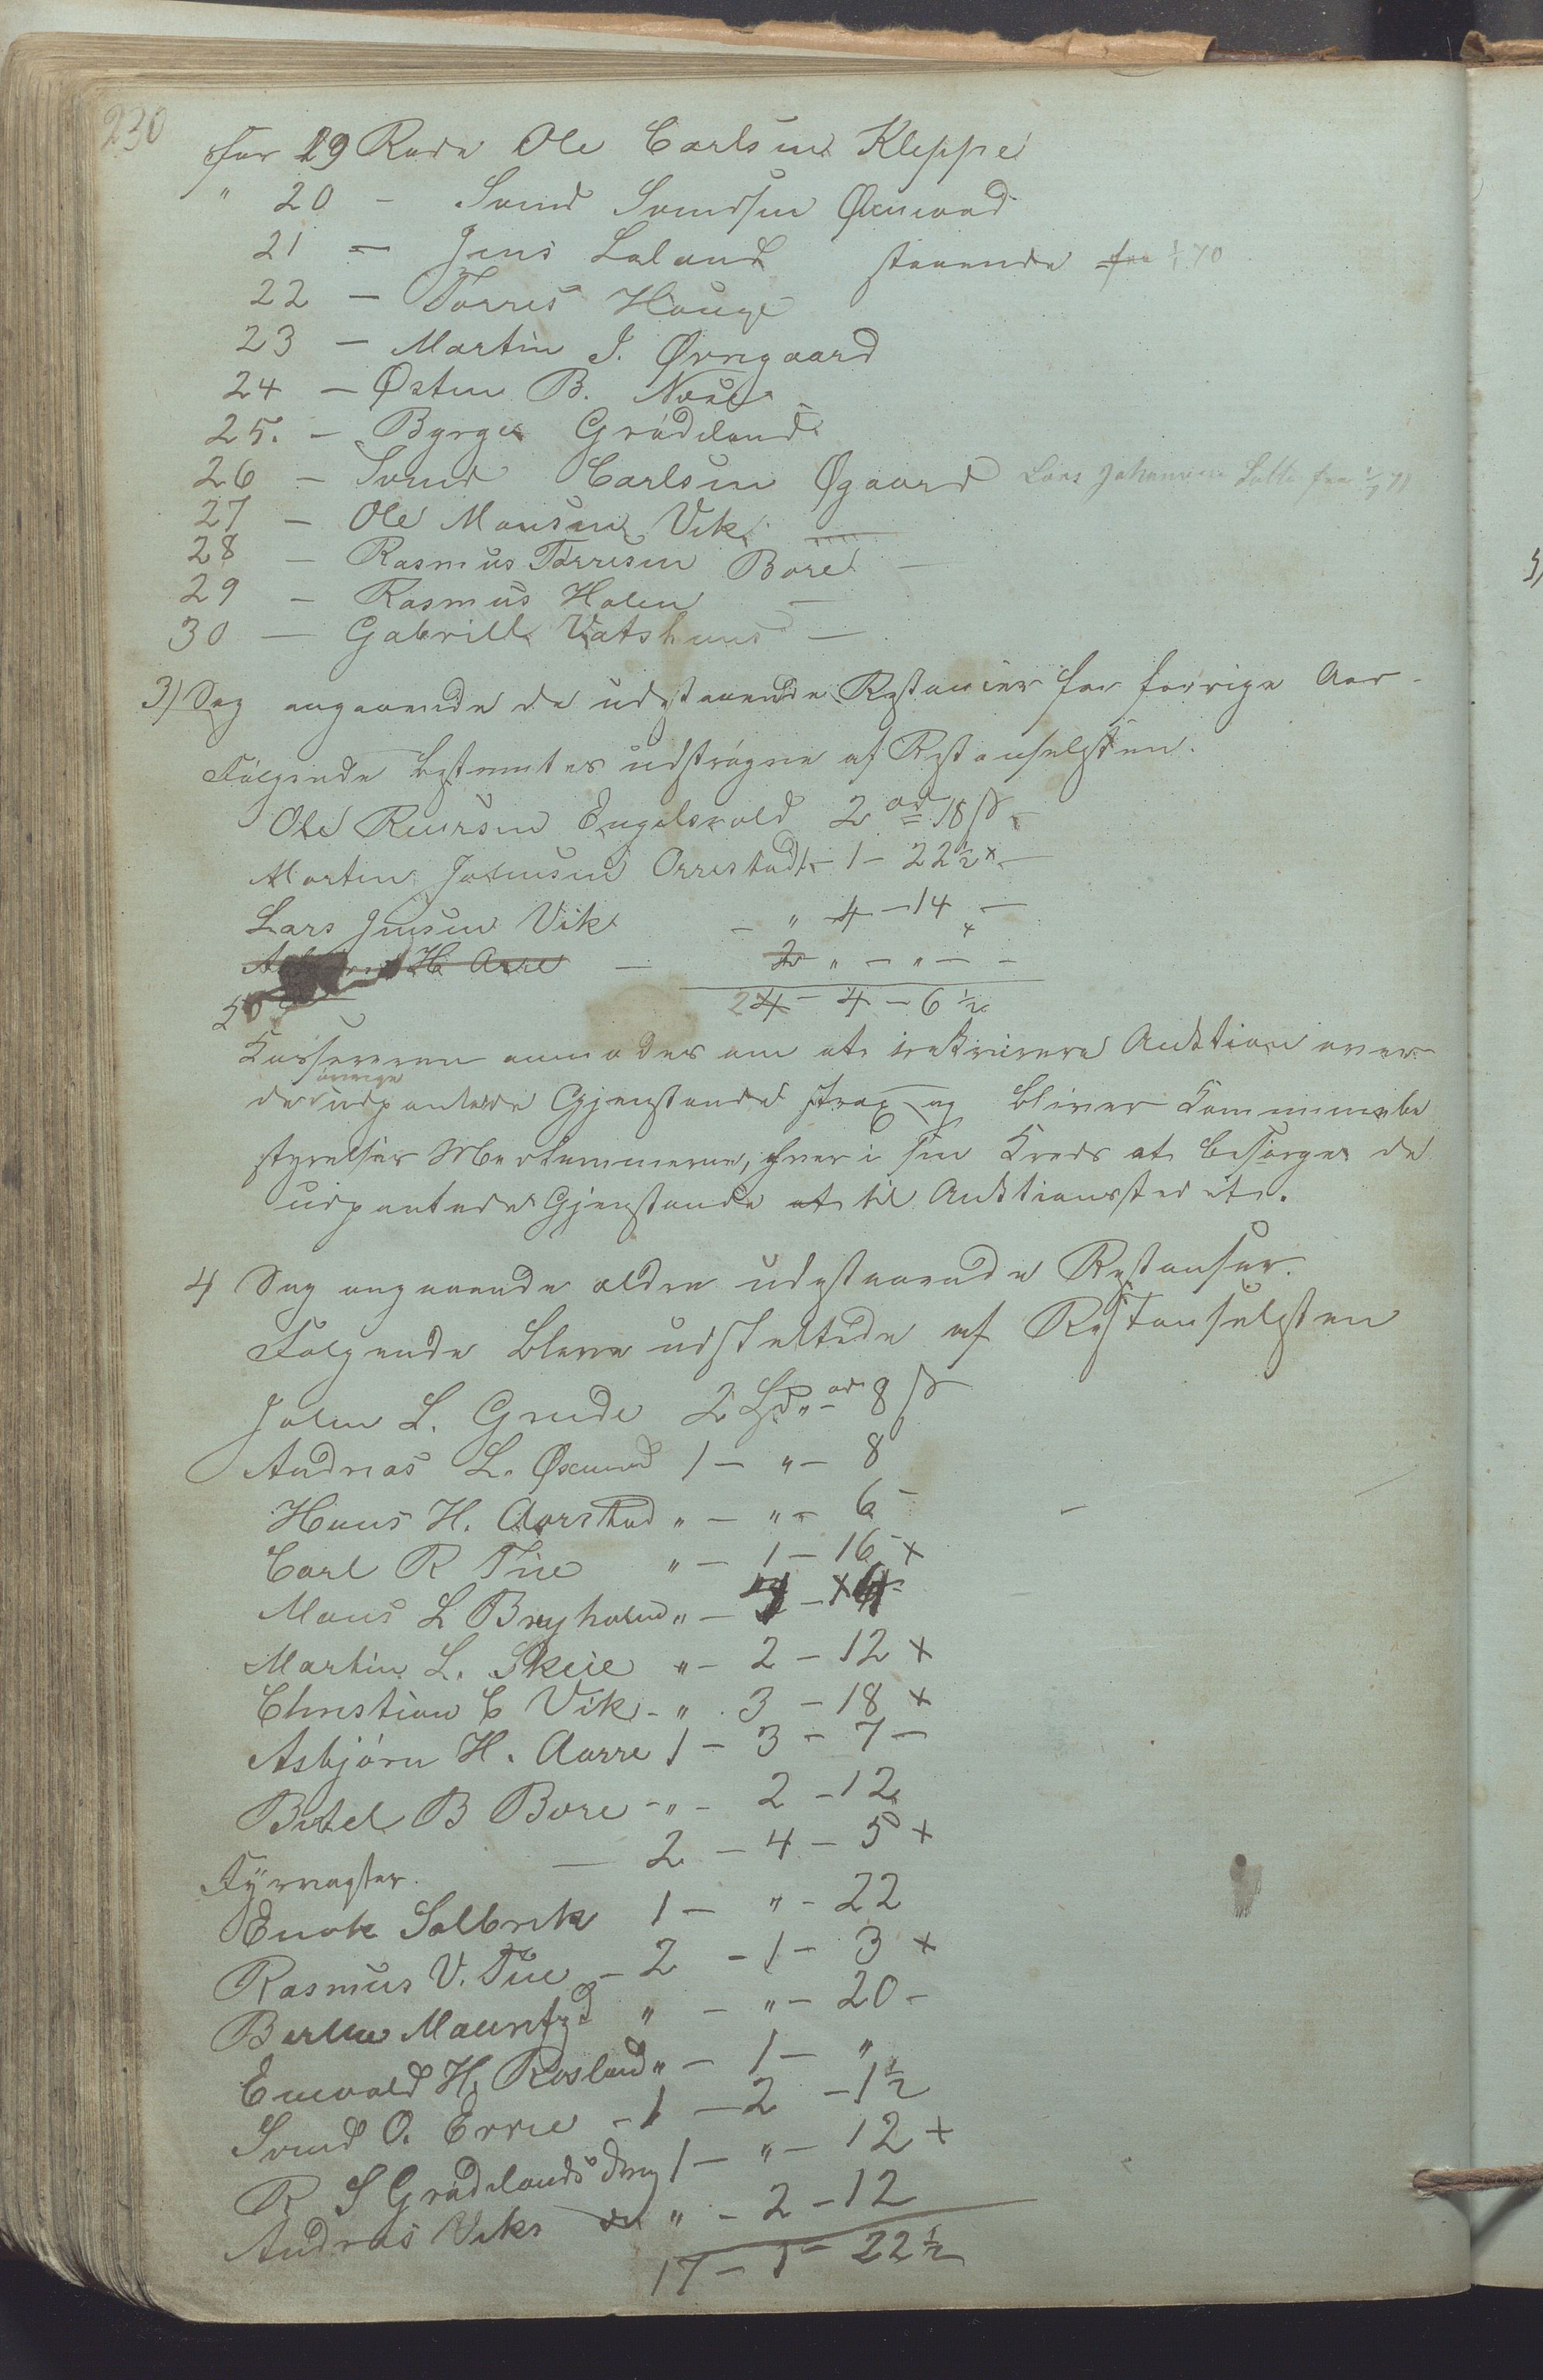 230
for 19 Rode Ole Carlsen Kleppe
" 20 - Svend Svendsen Øxnevad
21 - Jens Laland staaende fra 1/1 70
22 - Torres Hauge
23 - Martin J. Ørregaard
24 - Østen B. Nese
25. - Byrge Grødeland
26 - Svend Carlsen Øgaard Lars Johannesen fra 71
27 - Ole Mausen Vik
28 - Rasmus Torresen Bore -
29 - Rasmus Holen -
30 - Gabriel Vatshuus -
3) Sag angaaende de udestaaende Restancer for forrige Aar -
Følgende bestemtes udstrøgne af Restanselisten.
Ole Reiersen Engelsvold 2 ort 18 ß -
Morten Johnsen Orrestad - 1 - 22 1/2 x -
Lars Jensen Vik - " 4 - 14 -
H. Orre - 2 " - " - -
24 - 4 - 6 1/2
Kassereren anmodes om at rekvirere Auktion over
øvrige
de udpantede Gjenstande strax og bliver Kommunebe
styrelses Medlemmerne, hver i sin Kreds at besørge de
udpantede Gjenstande at til Auktionsstedet.
4 Sag angaaende ældre udestaaende Restanser.
Følgende bleve udslettede af Restanselisten
John L. Grude 2 Spd " ort 8 ß
Andreas L. Øxnevad 1 - " - 8
Hans H. Aarstad " - " - 6 -
Carl R Tue " - 1 - 16 - x
Maus L Bryholm " -
Martin L. Skeie " - 2 - 12 x
Christian C Vik - " . 3 - 18 x
Asbjørn H. Aarre 1 - 3 - 7 -
Botel B Bore - " - 2 - 12
Fyrvagter. - 2 - 4 - 5 x
Enok Salbrek 1 - " - 22
Rasmus V. Tue - 2 - 1 - 3 x
Maurits " - " - 20 -
Enevald H. Rosland " - 1 - "
Svend O. Erve - 1 - 2 - 1 1/2
R S Grødelands Dreng 1 - " - 12 x
Andreas Viks do " - 2 - 12
17 - 1 - 22 1/2